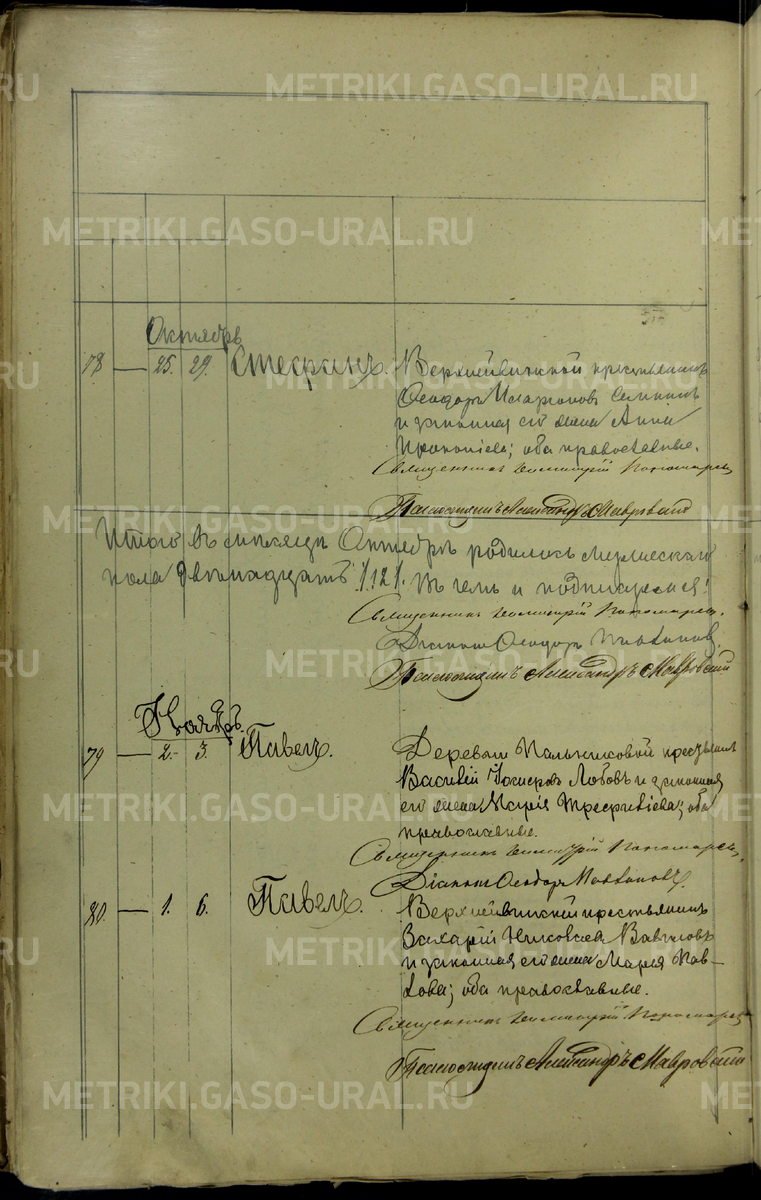 METRIKI.GASO-URAL.RU
Октябрь
78 — 25. 29. Стефанъ. Верхнейвинской крестьянинъ
Ѳеодоръ Иларіоновъ
и законная его жена Анна
Прокопіева; оба православные.
Священникъ Димитрій Пономаревъ
Псаломщикъ Александръ Мавровскій
Итого въ мѣсяцѣ Октябрѣ родилось мужескаго
пола двѣнадцать /12/. Въ чемъ и подписуемся:
Священникъ Димитрій Пономаревъ.
Діаконъ Ѳеодоръ
Псаломщикъ Александръ Мавровскій
Ноябрь.
79 — 2. 3. Павелъ. Деревни Пальниковой крестьянинъ
Василій Лобовъ и законная
его жена Марія; оба
православные.
Священникъ Димитрій Пономаревъ.
Діаконъ Ѳеодоръ
80. — 1. 6. Павелъ. Верхнейвинской крестьянинъ
Захарій Вавиловъ
и законная его жена Марія Пав-
лова; оба православные.
Священникъ Димитрій Пономаревъ
Псаломщикъ Александръ Мавровскій